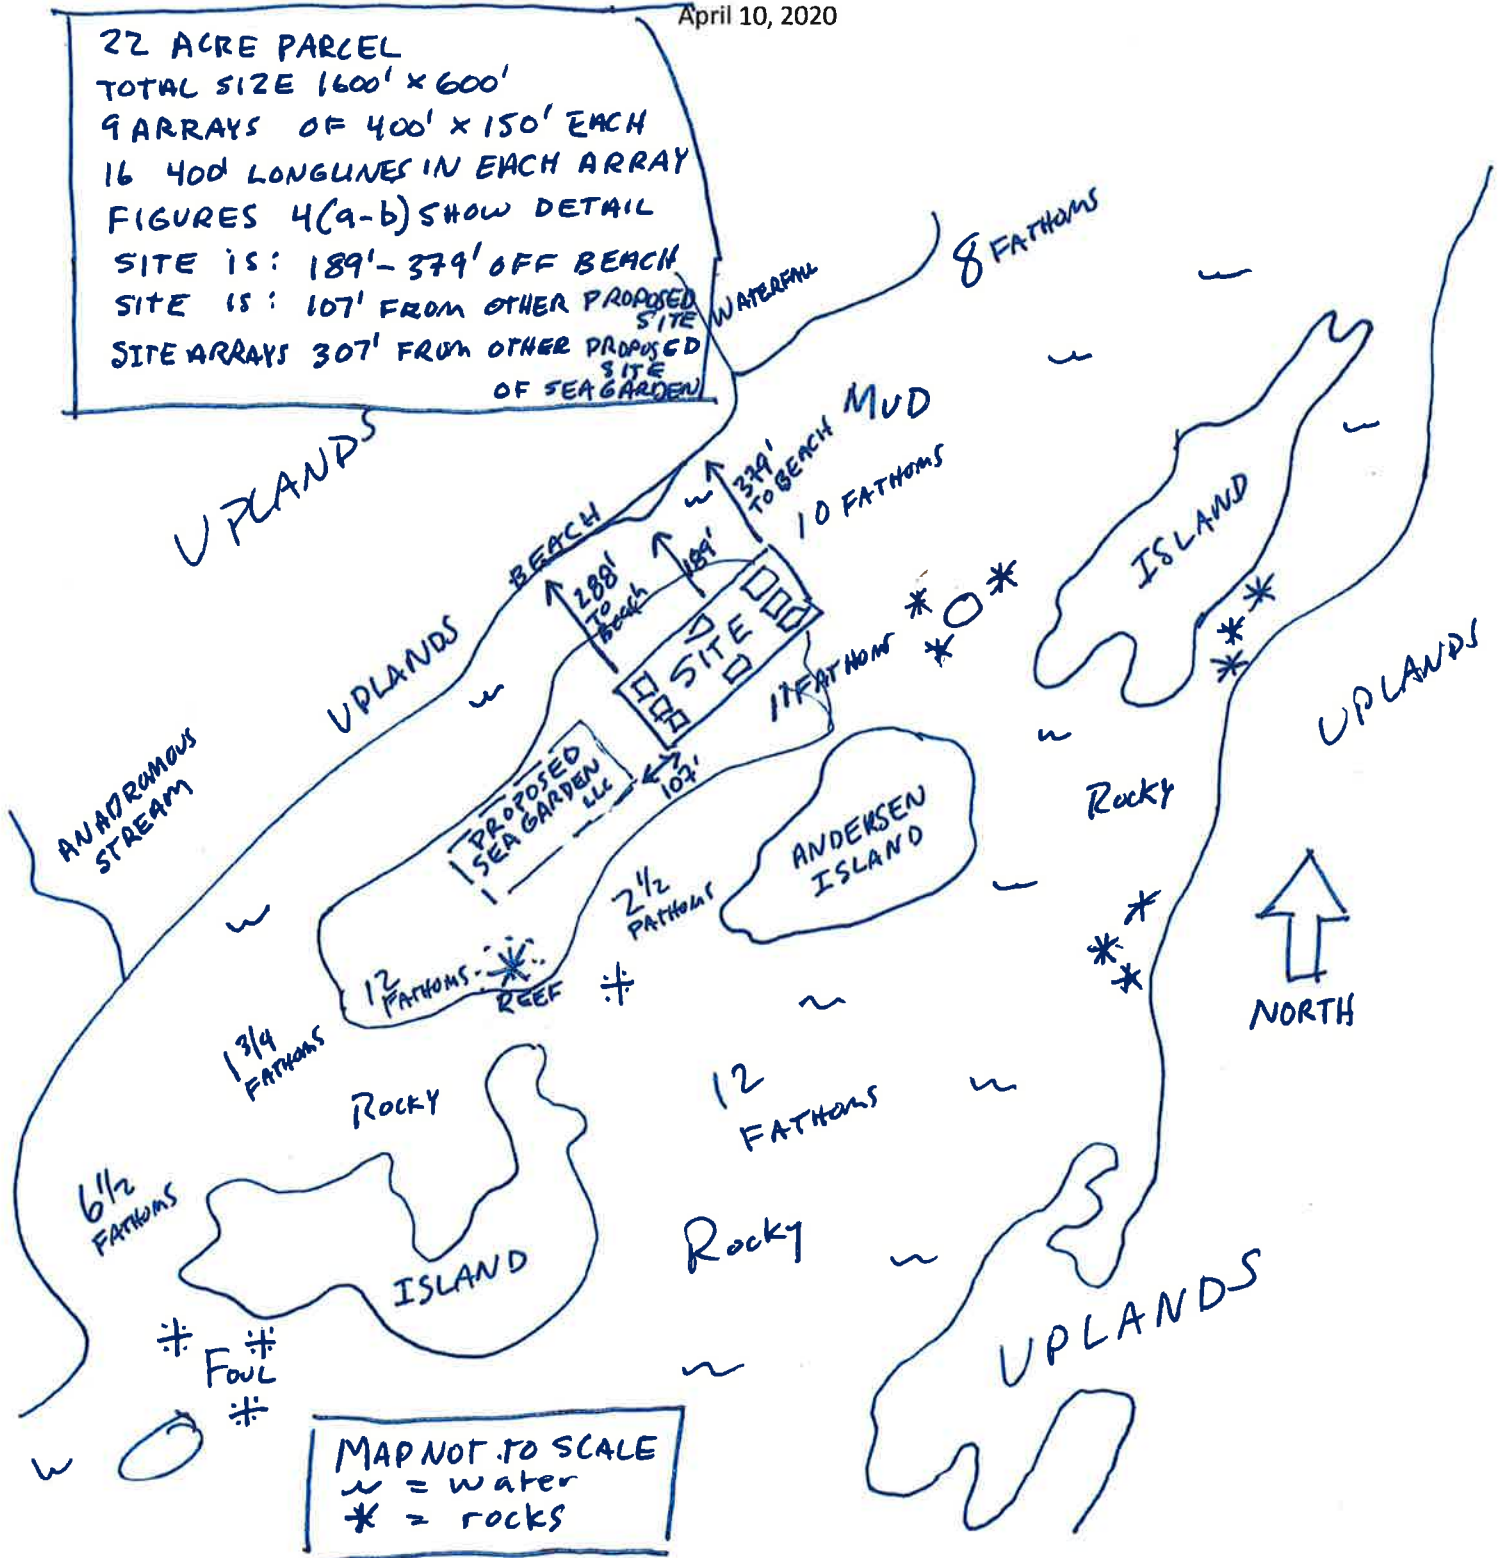 April 10, 2020
22 ACRE PARCEL
TOTAL SIZE 1600' x 600'
9 ARRAYS OF 400' x 150' EACH
16 400' LONGLINES IN EACH ARRAY
FIGURES 4(a-b) SHOW DETAIL
SITE iS: 189'-379' OFF BEACH
SITE IS: 107' FROM OTHER PROPOSED
SITE
SITE ARRAYS 307' FROM OTHER PROPOSED
SITE
OF SEA GARDEN
WATERFALL
8 FATHOMS
UPLANDS
MUD
379'
TO BEACH
10 FATHOMS
BEACH
189'
288'
TO
Beach
ISLAND
SITE
11 FATHOM
UPLANDS
UPLANDS
ANADROMOUS
STREAM
PROPOSED
SEA GARDEN
LLC
107'
Rocky
ANDERSEN
ISLAND
2 1/2
FATHOMS
12
FATHOMS
REEF
NORTH
1 3/4
FATHOMS
ROCKY
12
FATHOMS
6 1/2
FATHOMS
Rocky
ISLAND
UPLANDS
FOUL
MAP NOT TO SCALE
~ = water
* = rocks